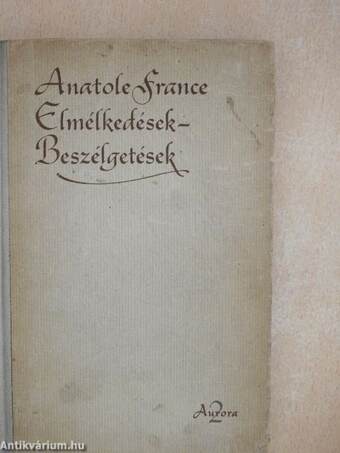 Anatole France
Elmélkedések-
Beszélgetések
Aurora
2
Antikvárium.hu